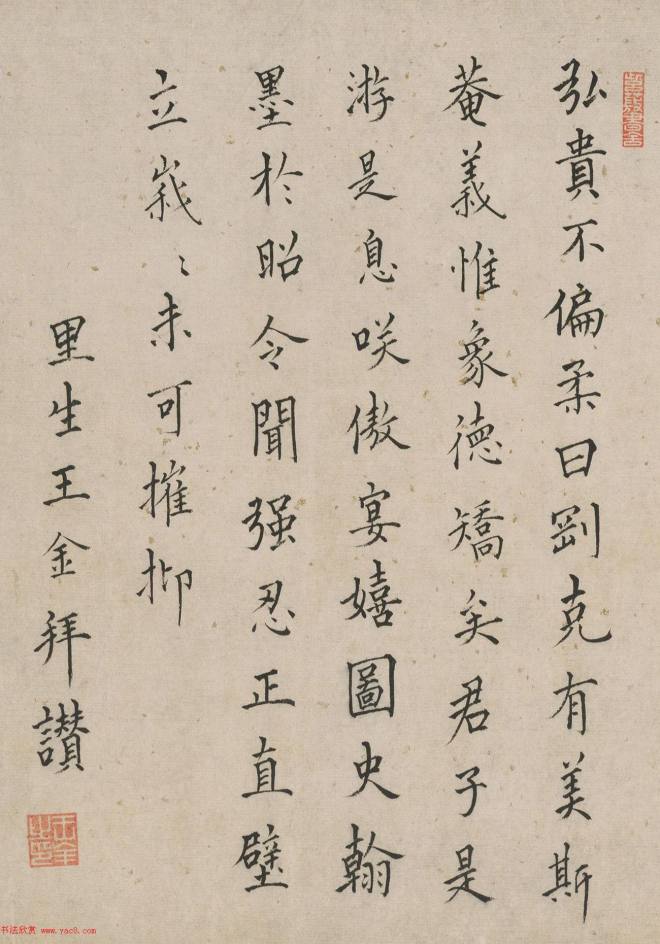 弘貴不偏柔曰剛克有美斯
菴義惟象德矯矣君子是
游是息咲傲宴嬉圖史翰
墨於昭令聞强忍正直壁
立峩〻未可摧抑
里生王金拜讃
书法欣赏 www.yac8.com